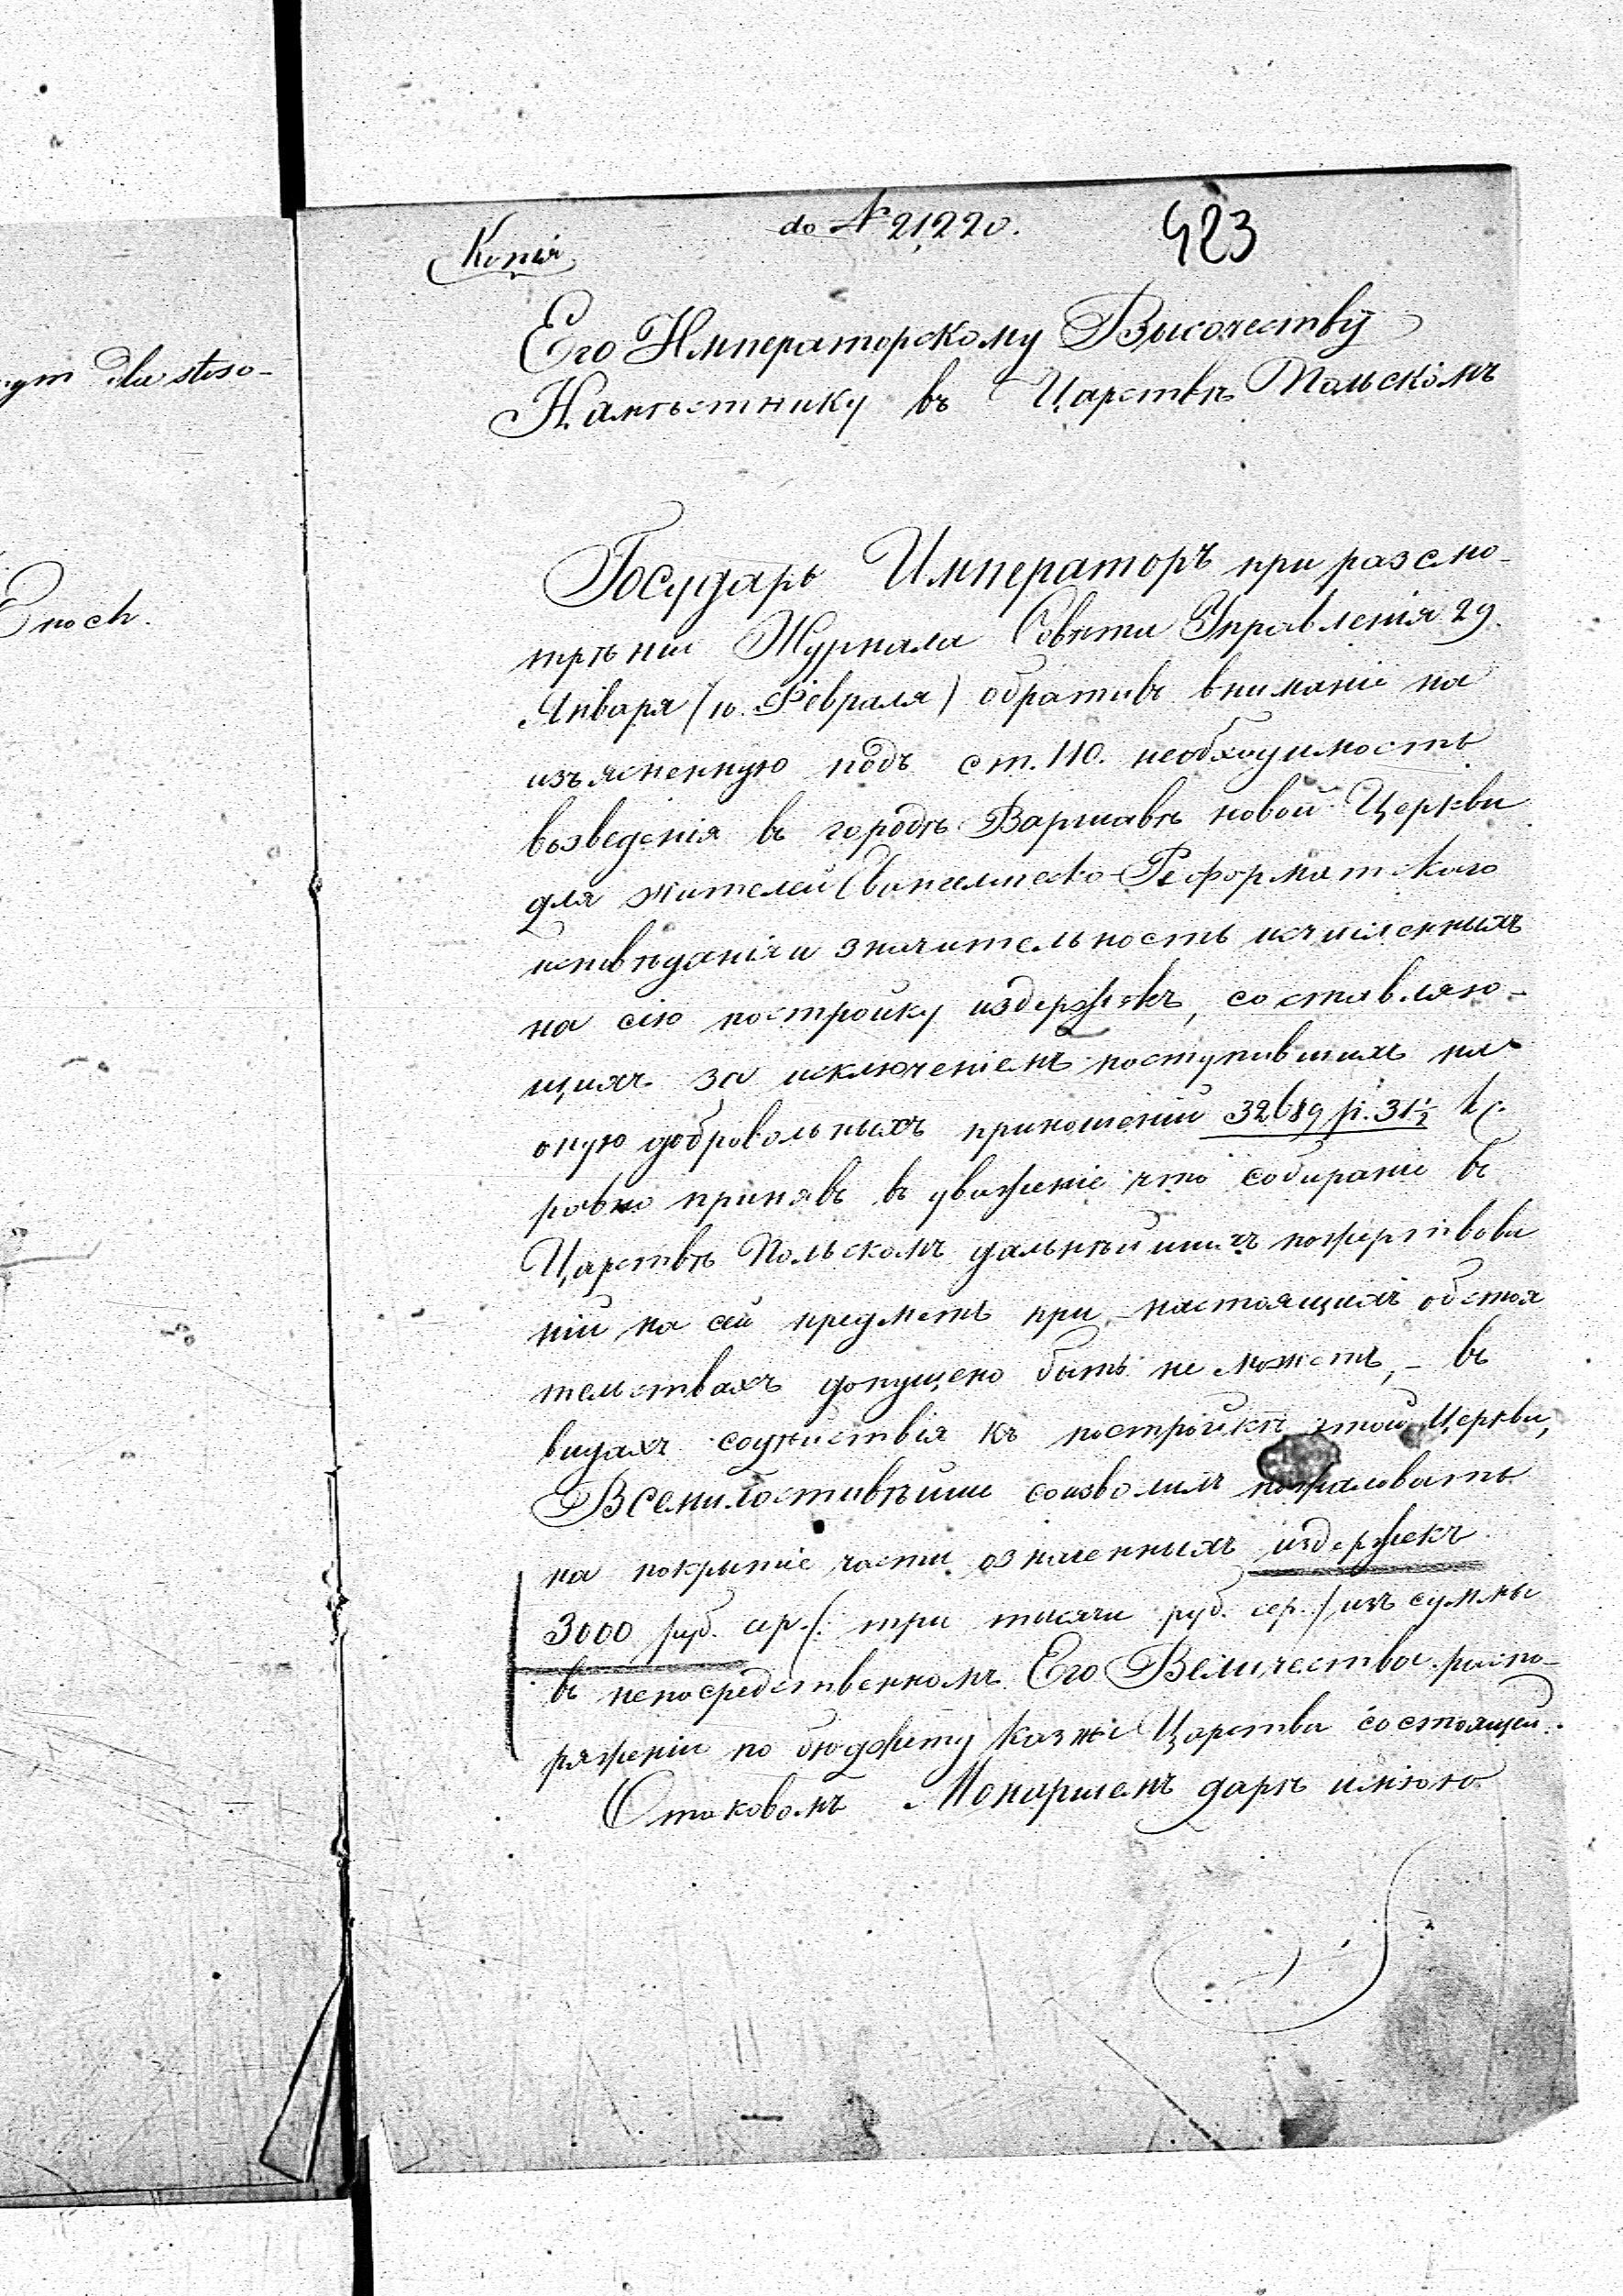 ym dla stoso-
Enoch.
do № 21,220.
423
Копія
Его Императорскому Высочеству
Намѣстнику въ Царствѣ Польскомъ
Государь Императоръ при разсмо-
трѣніи Журнала Совѣта Управленія 29
Января (10. Февраля) обративъ вниманіе на
изъясненную подъ ст. 110. необходимость
возведенія въ городѣ Варшавѣ новой Церкви
для жителей Евангелическо-Реформатскаго
исповѣданія и значительность исчисленныхъ
на сію постройку издержекъ, составляю-
щихъ за исключеніемъ поступившихъ на
оную добровольныхъ приношеній 32689 р. 31½ к.
равно принявъ въ уваженіе что собираніе въ
Царствѣ Польскомъ дальнѣйшихъ пожертвова
ній на сей предметъ при настоящихъ обстоя
тельствахъ допущено быть не можетъ, - въ
видахъ содѣйствія къ постройкѣ этой Церкви,
Всемилостивѣйше соизволилъ пожаловать
на покрытіе части означенныхъ издержекъ
3000 руб. сер. (три тысячи руб. сер.) изъ суммы
въ непосредственномъ Его Величества распо-
ряженіи по бюджету Казны Царства состоящей.
О таковомъ Монаршемъ дарѣ имѣю